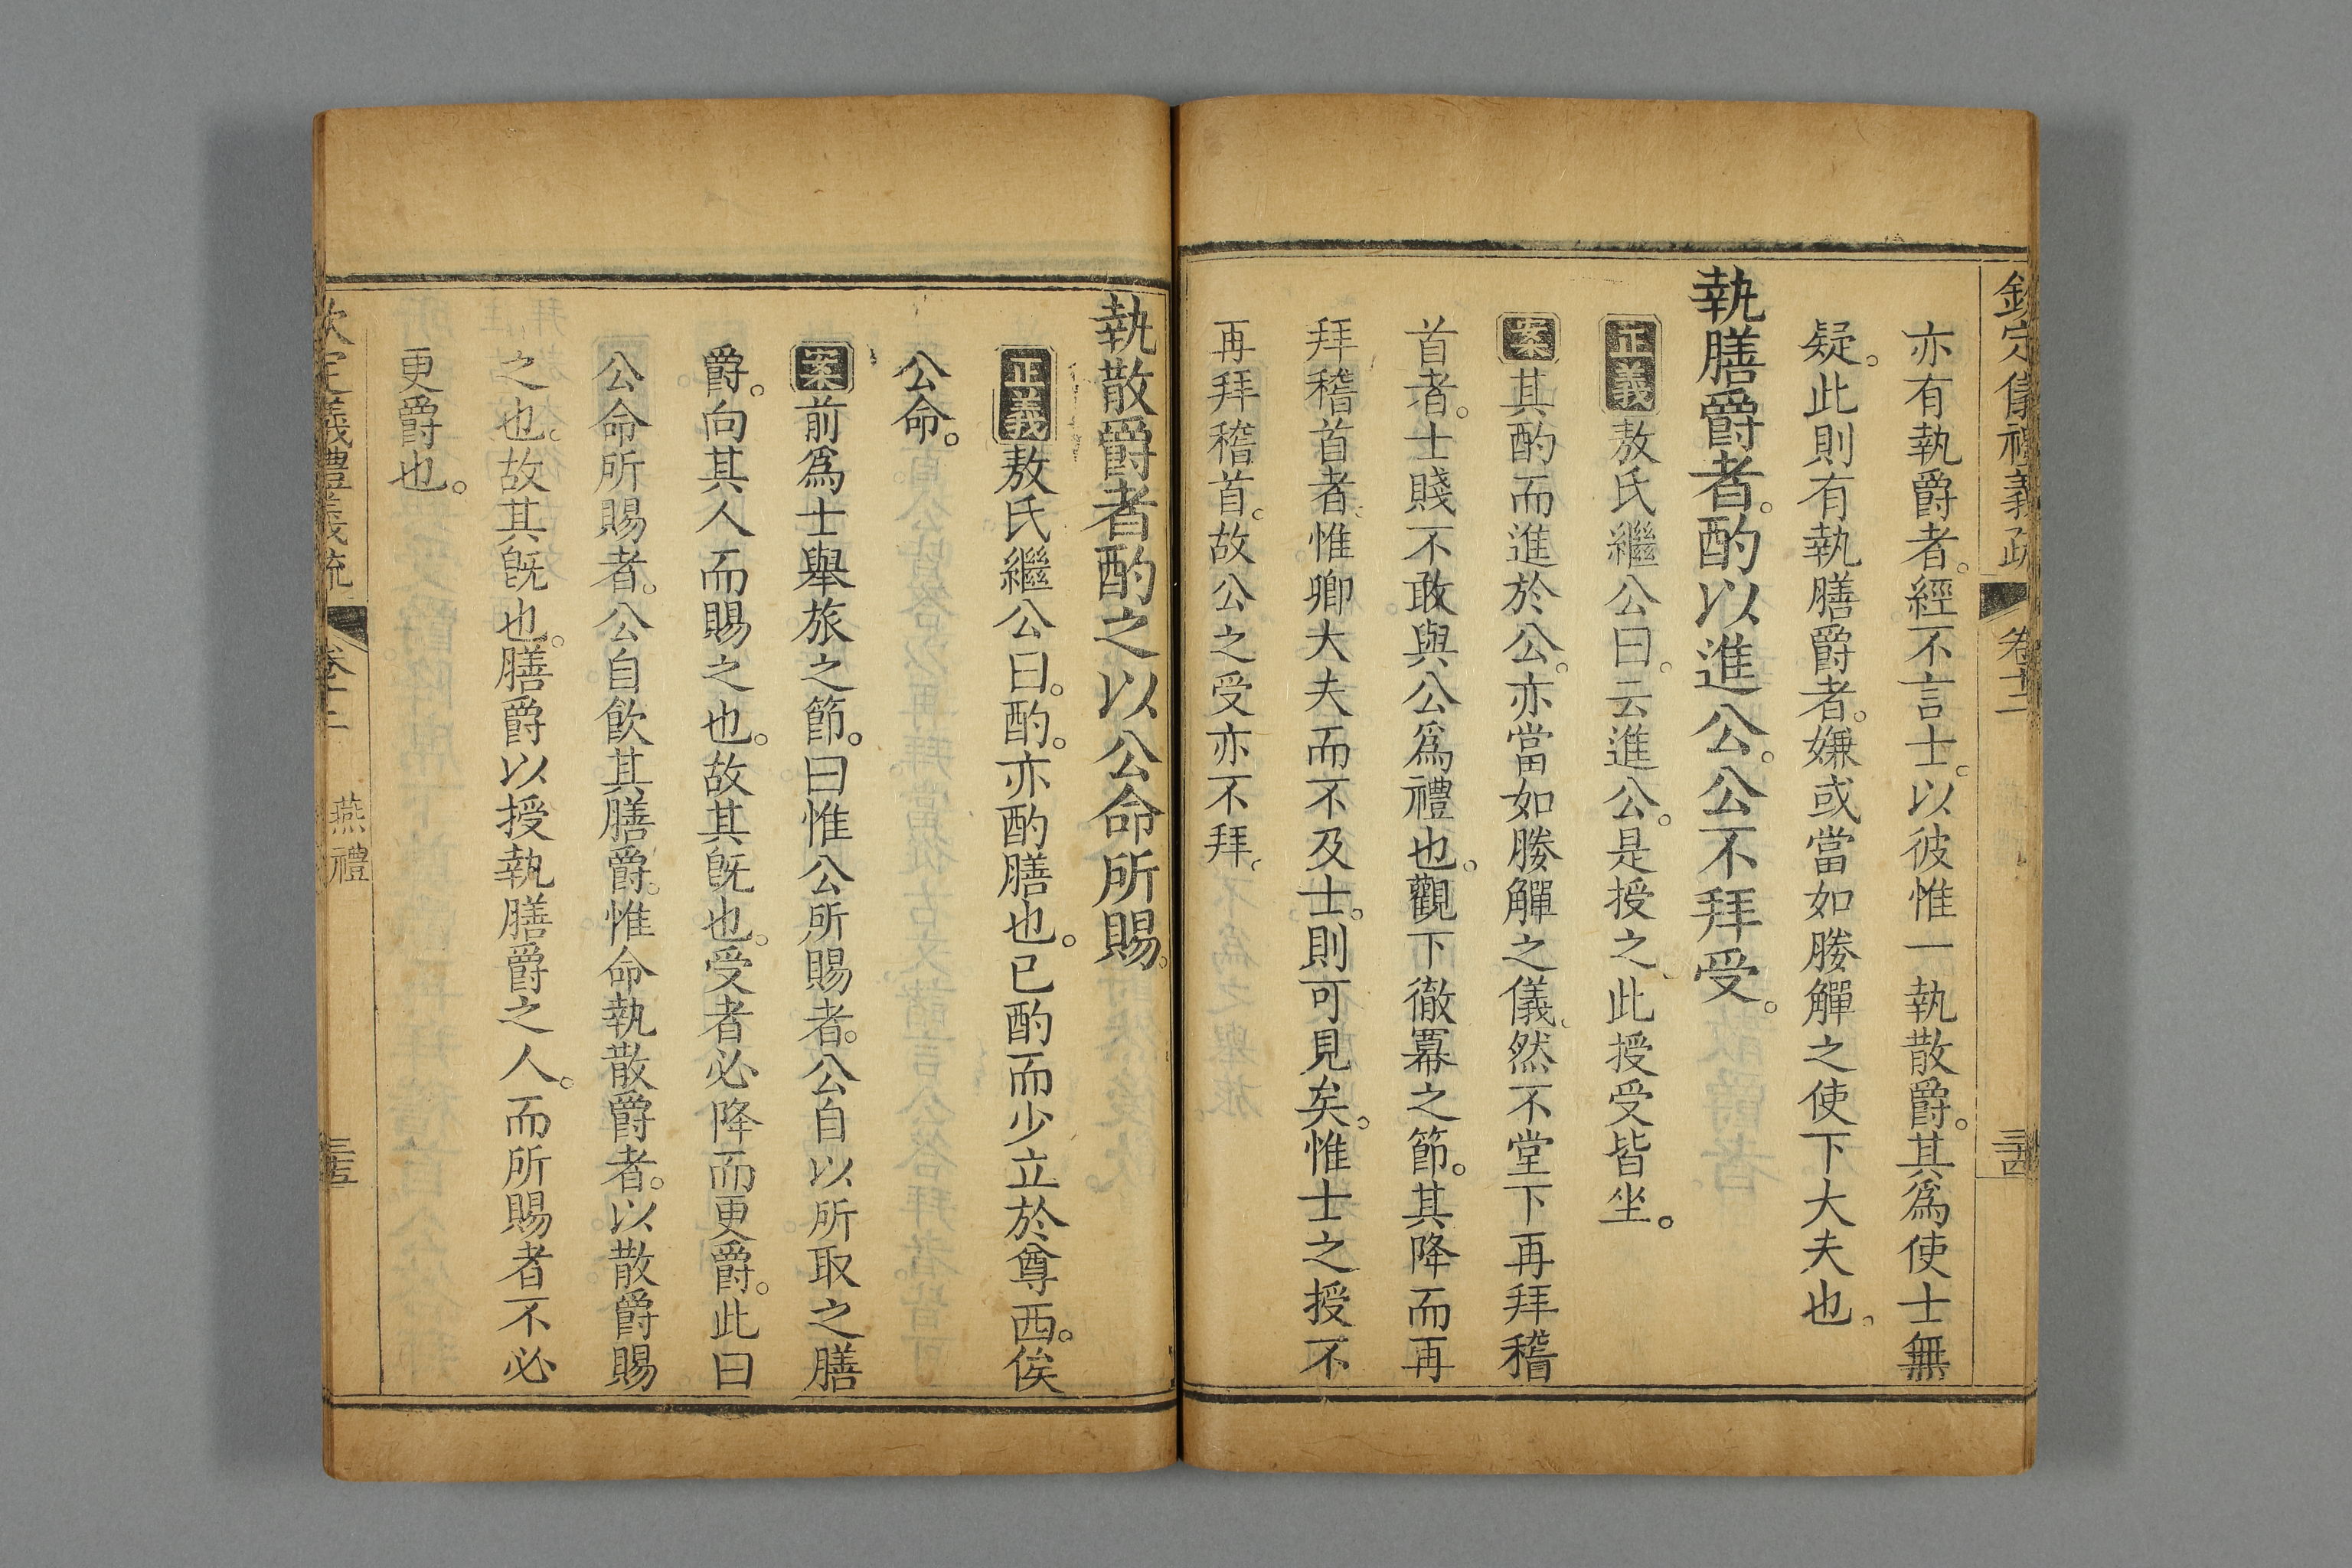 欽定儀禮義疏　卷十二　三十四
亦有執爵者。經不言士。以彼惟一執散爵。其爲使士無
疑。此則有執膳爵者。嫌或當如媵觶之使下大夫也。
執膳爵者。酌以進公。公不拜受。
正義敖氏繼公曰。云進公。是授之。此授受皆坐。
案其酌而進於公。亦當如媵觶之儀。然不堂下再拜稽
首者。士賤不敢與公爲禮也。觀下徹冪之節。其降而再
拜稽首者。惟卿大夫而不及士。則可見矣。惟士之授不
再拜稽首。故公之受亦不拜。
執散爵者酌之以公命所賜。
正義敖氏繼公曰。酌。亦酌膳也。已酌而少立於尊西。俟
公命。
案前爲士舉旅之節。曰惟公所賜者。公自以所取之膳
爵。向其人而賜之也。故其旣也。受者必降而更爵。此曰
公命所賜者。公自飲其膳爵。惟命執散爵者。以散爵賜
之也。故其旣也。膳爵以授執膳爵之人。而所賜者不必
更爵也。
欽定儀禮義疏　卷十二　燕禮　三十五